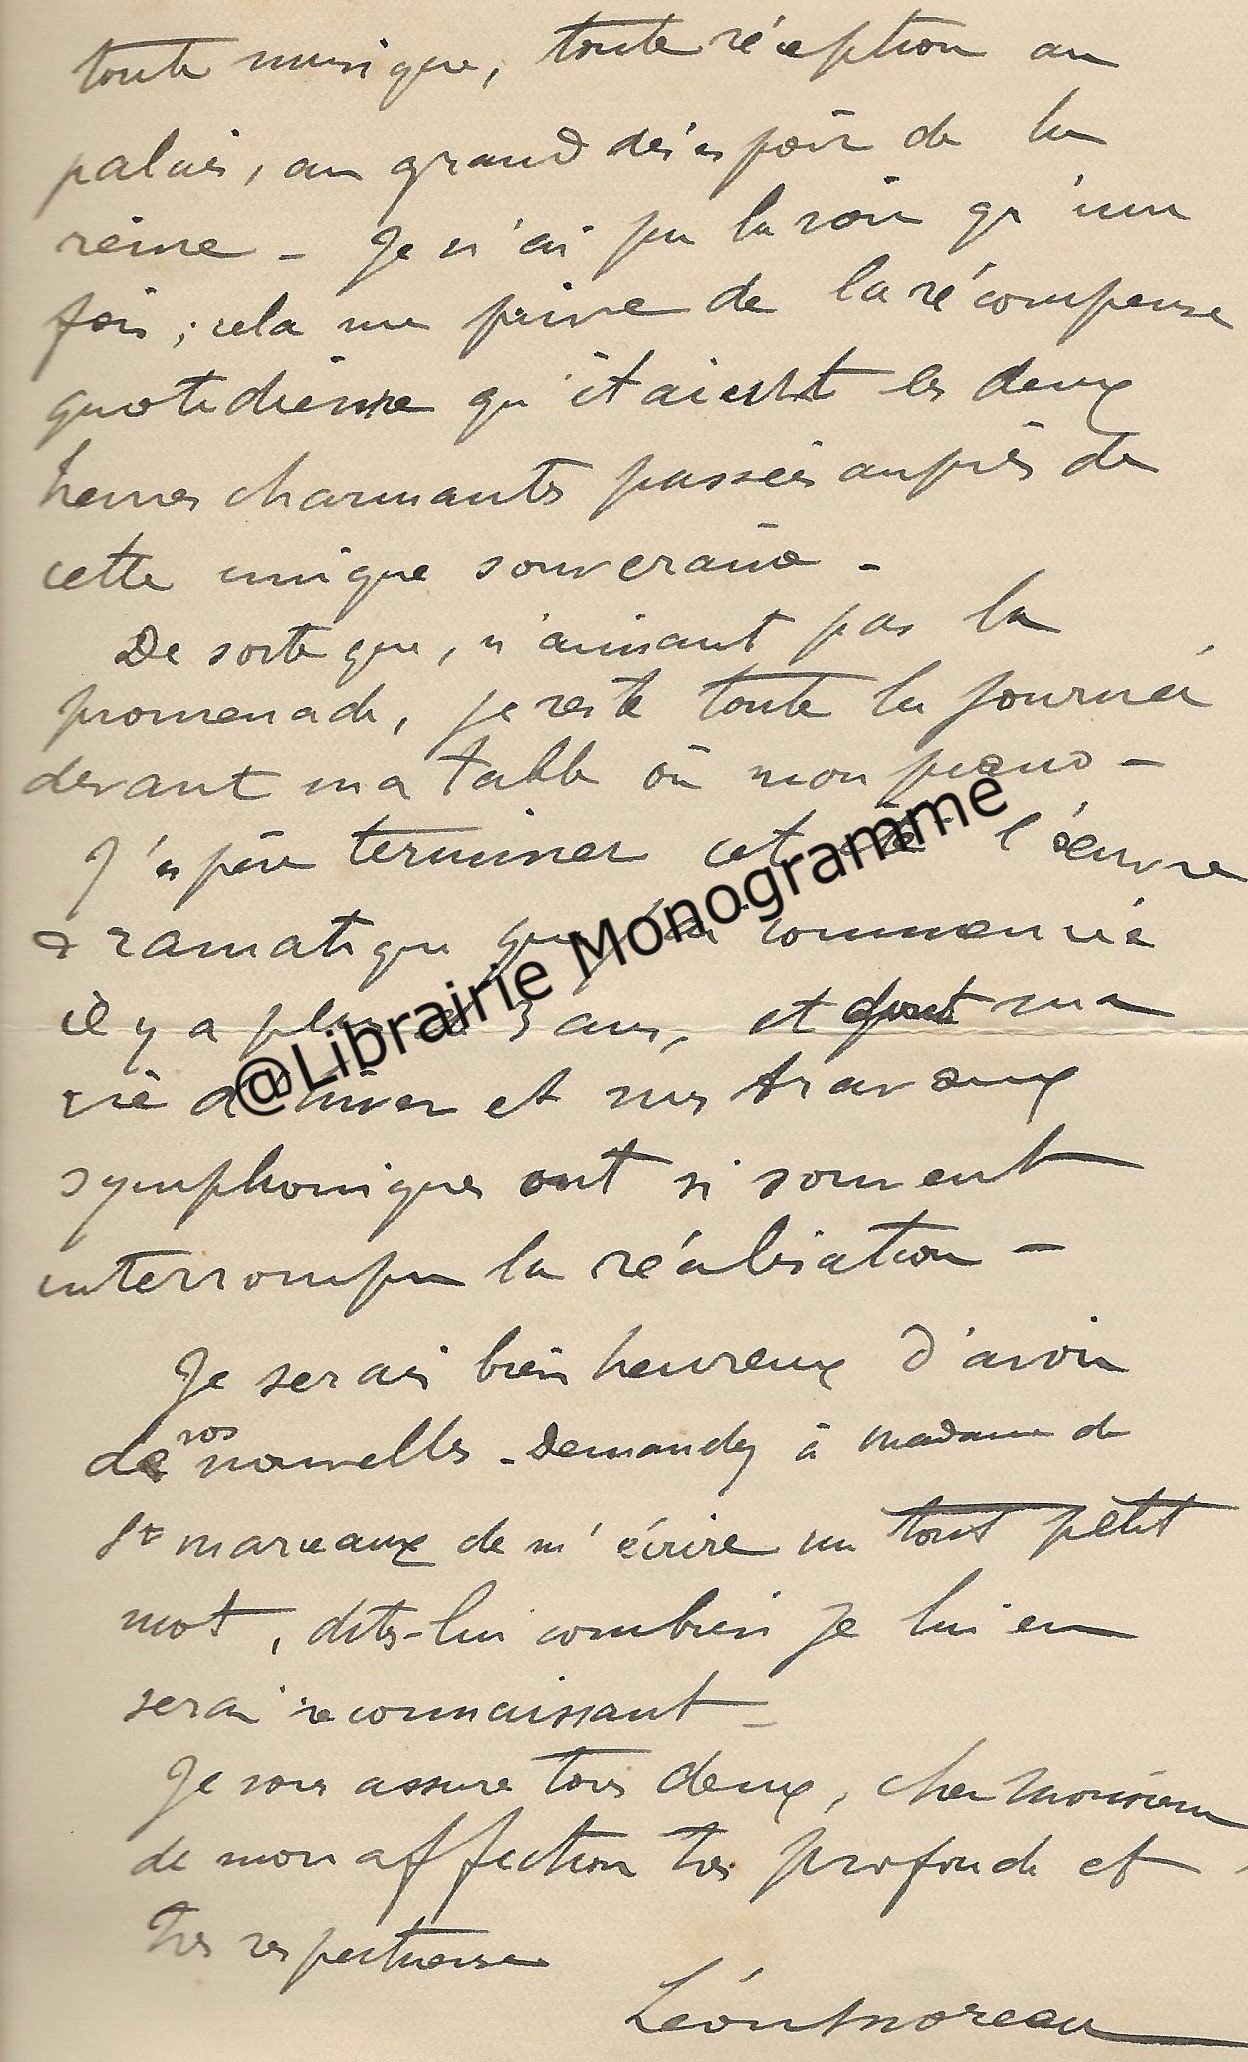 toute musique, toute réception au
palais, au grand désespoir de la
reine - Je n'ai pu la voir qu'une
fois ; cela me prive de la récompense
quotidienne qu'étaient les deux
heures charmantes passées auprès de
cette unique souveraine -
De sorte que, n'aimant pas la
promenade, je reste toute la journée
devant ma table ou mon piano -
J'espère terminer cet été l'œuvre
dramatique que j'ai commencée
il y a plus de 3 ans, et dont ma
vie d'hiver et mes travaux
symphoniques ont si souvent
interrompu la réalisation -
Je serais bien heureux d'avoir
de vos nouvelles - Demandez à madame de
St marceaux de m'écrire un tout petit
mot, dites-lui combien je lui en
serai reconnaissant -
Je vous assure tous deux, cher Monsieur
de mon affection très profonde et
très respectueuse
Léon Moreau
@Librairie Monogramme